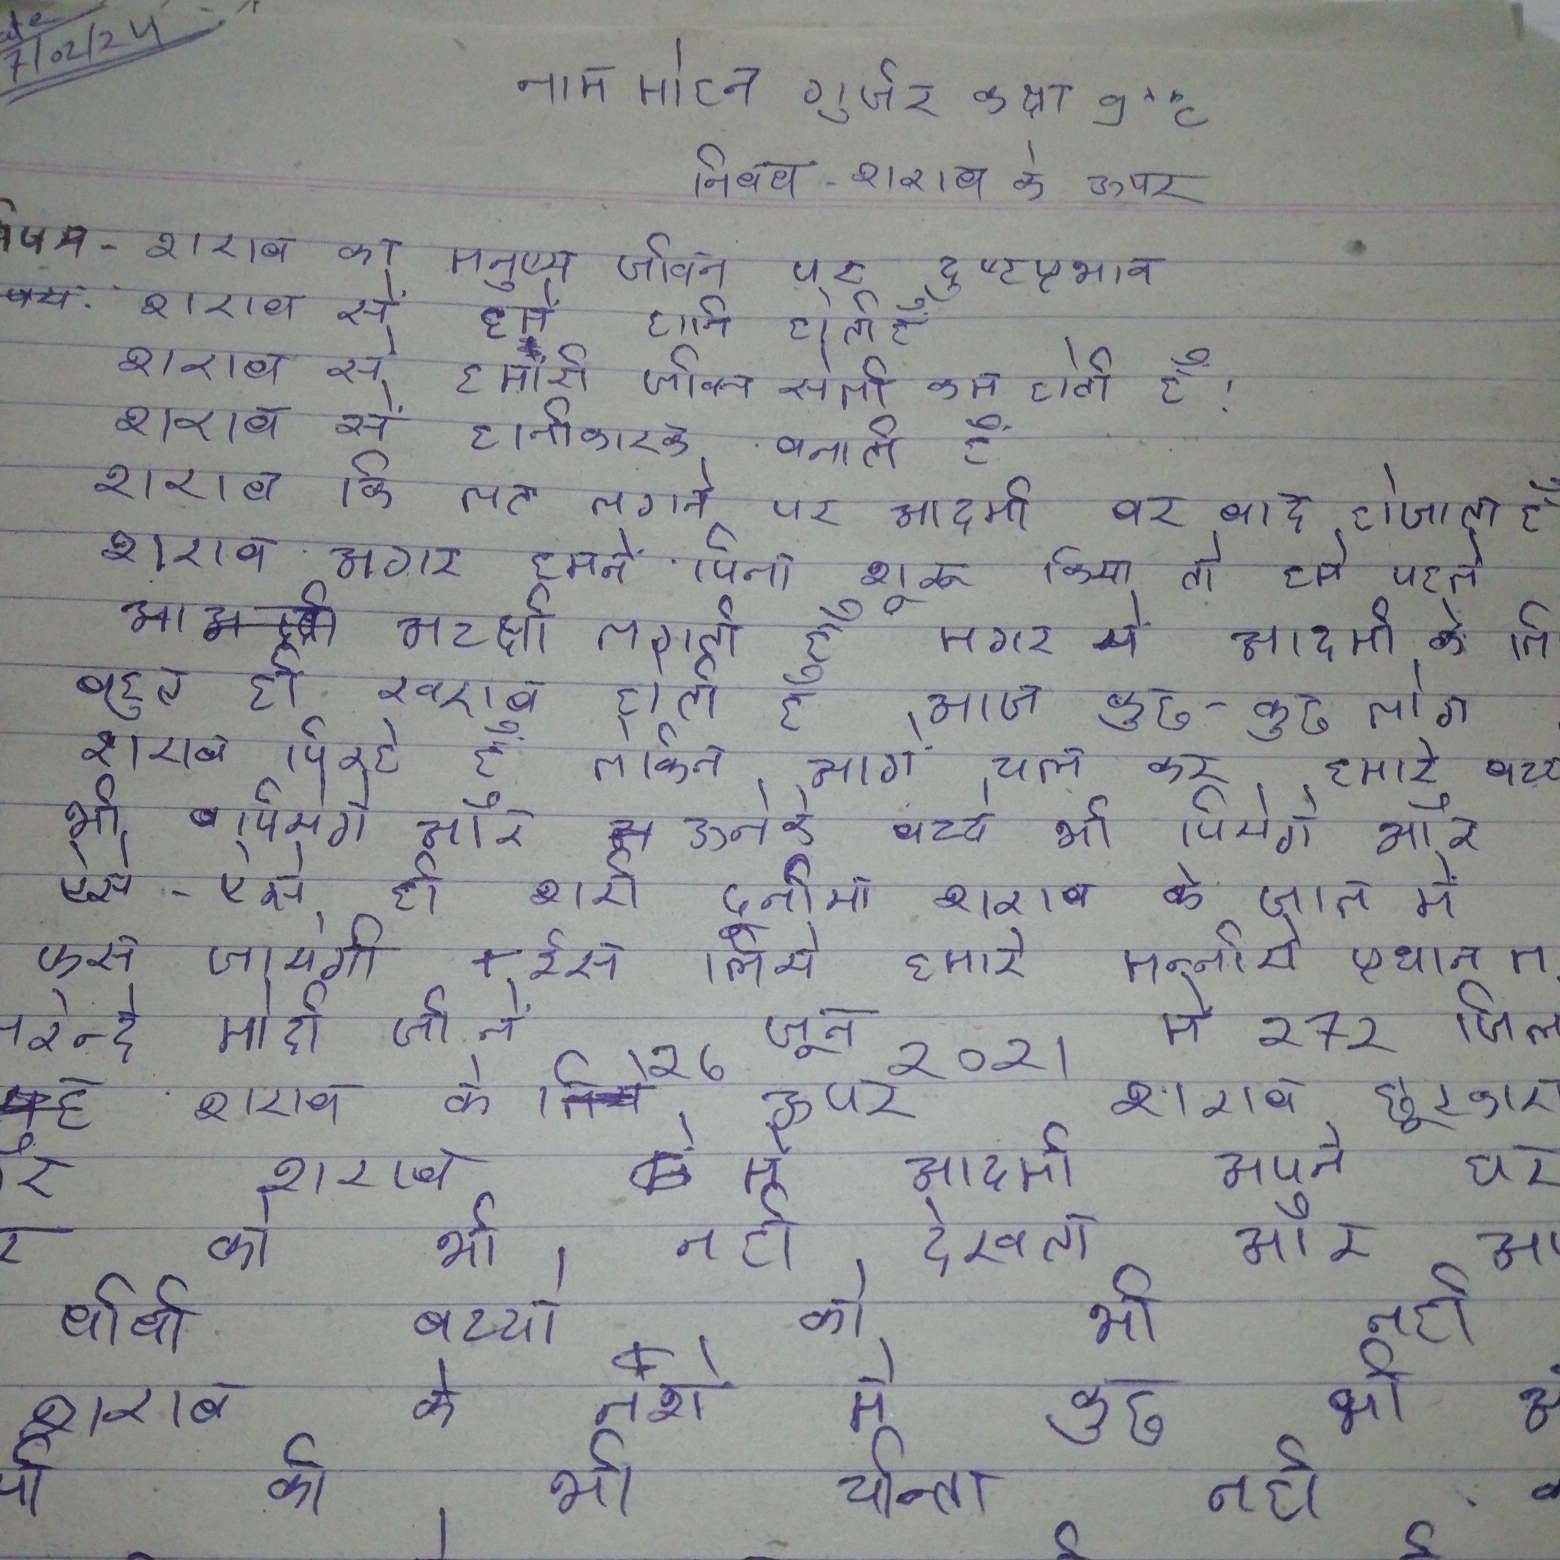 Date
7/02/24
नाम मोहन गुर्जर कक्षा 9th
निबंध - शराब के ऊपर
विषय - शराब का मनुष्य जीवन पर दुष्टप्रभाव
शराब से हमें हानि होती हैं
शराब से हमारी जीवन सेली कम होती हैं।
शराब सें हानीकारक बनाती हैं
शराब कि लत लगने पर आदमी बर बाद होजाता हैं
शराब अगर हमनें पिना शुरू किया तो हमे पहले
अच्छी लगती हैं मगर ये आदमी के लि
बहुत ही खराब होती हैं आज कुछ - कुछ लोग
शराब पिरहे हैं लेकिन आगे चल कर हमारे बच्चे
भी पियेगे और उनके बच्चे भी पियेगे और
ऐसे - ऐसे ही शारी दुनीया शराब के जाल में
फस जायेगी ईस लिये हमारे मन्नीये प्रधान म
नरेन्द्रे मोदी जी नें 26 जून 2021 मे 272 जिल
शराब के ऊपर शाराब छुटकारा
और शराब मे आदमी अपने घर
को भी नही देखता और अप
बीबी बच्चो को भी नही
शराब के नशे मे कुछ भी
की भी चीन्ता नही